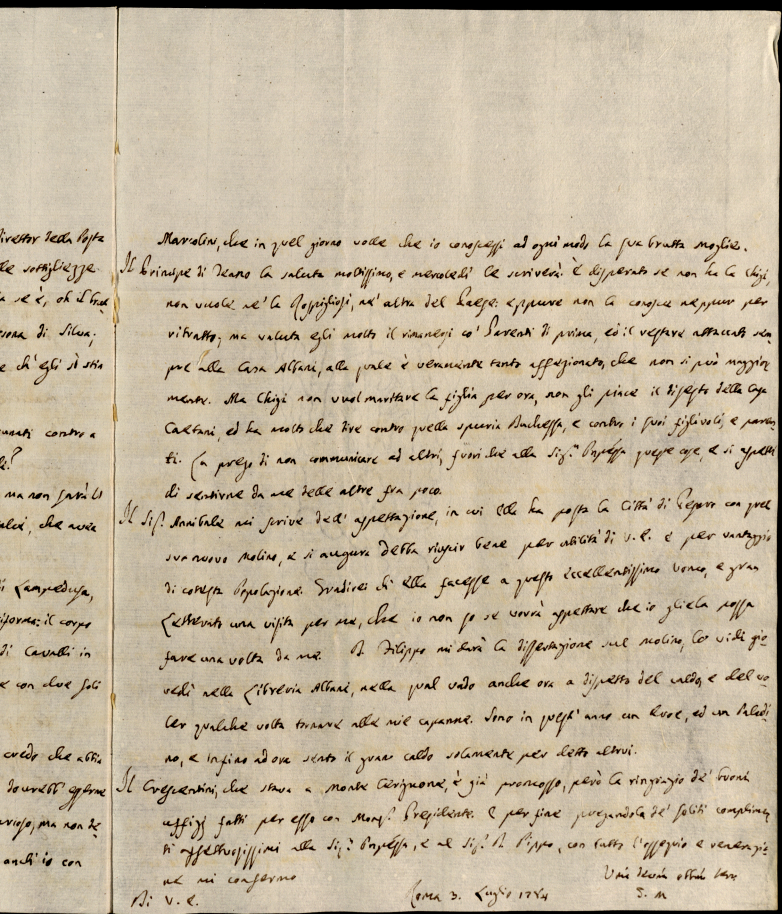 Director della Posta
le sottigliezze
sona di Silva;
e ch'egli si stia
contro a
ma non sarà lo
che avea
di Lampedusa,
il corpo
di Cavalli in
e con due soli
credo che abbia
dovrebb' esserne
ma non de-
anch'io con
Marcolini, che in quel giorno volle che io conoscessi ad ogni modo la sua brutta moglie.
Il Principe di Teano la saluta moltissimo, e mercoledì le scriverà. è disperato se non ha la Chigi,
non vuole nè la Rospigliosi, nè altra del Paese: eppure non la conosce neppur per
ritratto; ma valuta egli molto il rimanersi co' Parenti di prima, ed il restare attaccato sem-
pre alla Casa Albani, alla quale è veramente tanto affezionato, che non si può maggior-
mente. Ma Chigi non vuol maritare la figlia per ora, non gli piace il dissesto della Casa
Caetani, ed ha molto che dire contro quella spuria Duchessa, e contro i suoi figlivoli, e paren-
ti. La prego di non communicare ad altri, fuori che alla Sig.ra Pnpessa queste cose, e si aspetti
di sentirne da me delle altre fra poco.
Il Sig.r Annibale mi scrive dell' aspettazione, in cui ella ha posta la Città di Pesaro con quel
suo nuovo Molino, e si augura debba riuscir bene per utilità di V. E. e per vantaggio
di cotesta Popolazione. Gradirei che ella facesse a questo eccellentissimo Uomo, e gran
Letterato una visita per me, che io non so se vorrà aspettare che io gliela possa
fare una volta da me. D. Filippo mi darà la dissertazione sul molino, lo vidi gio-
vedì nella Libreria Albani, nella qual vado anche ora a dispetto del caldo, e del vo-
ler qualche volta tornare alle mie capanne. Sono in quest' anno un Eroe, ed un Paladi-
no, e infino ad ora sento il gran caldo solamente per detto altrui.
Il Crescentini, che stava a Monte Cerignone, è già promosso, però la ringrazio de' buoni
uffizj fatti per esso con Mons.r Presidente. E per fine pregandola de' soliti complimen-
ti affettuosissimi alla Sig.ra Pnpessa, e al Sig.r D. Pippo, con tutto l'ossequio e venerazio-
ne mi confermo
Di V. E.
Roma 3. Luglio 1784
S. M